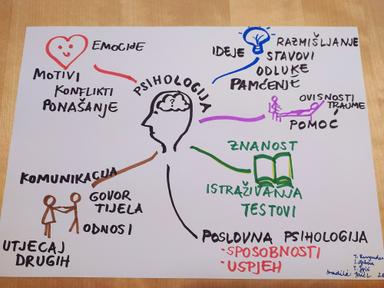 EMOCIJE
MOTIVI
KONFLIKTI
PONAŠANJE
PSIHOLOGIJA
IDEJE
RAZMIŠLJANJE
STAVOVI
ODLUKE
PAMĆENJE
OVISNOSTI
TRAUME
POMOĆ
ZNANOST
ISTRAŽIVANJA
TESTOVI
KOMUNIKACIJA
GOVOR
TIJELA
ODNOSI
UTJECAJ
DRUGIH
POSLOVNA PSIHOLOGIJA
-SPOSOBNOSTI
-USPJEH